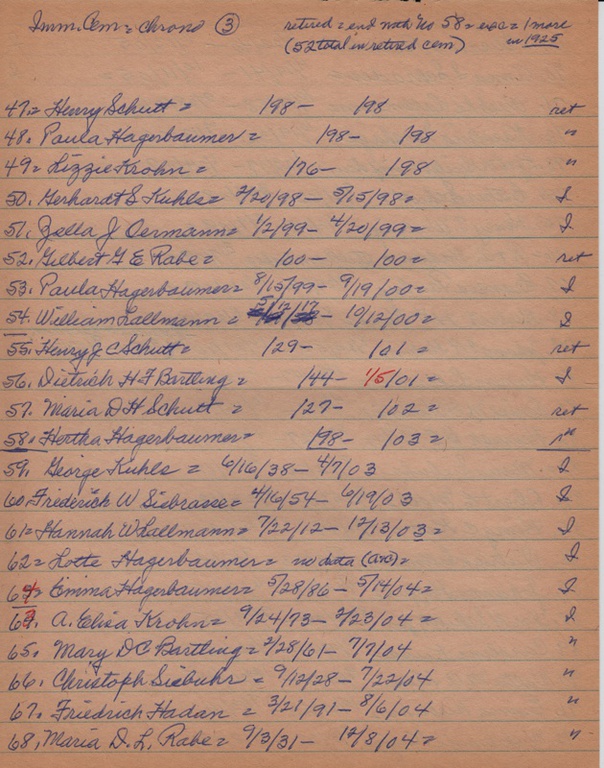 Imm. Cem = Chrono ③ retired = end with No 58 = exc = 1 more
(52 total in retired cem) in 1925
47= Henry Schutt = /98 - /98 ret
48. Paula Hagerbaumer = /98 - /98 "
49= Lizzie Krohn = /76 - /98 "
50. Gerhardt S Kuhls = 2/20/98 - 5/15/98 = I
51. Zella J Oermann = 1/2/99 - 4/20/99 = I
52. Gilbert G E Rabe = /00 - /00 = ret
53. Paula Hagerbaumer = 8/15/99 - 9/19/00 = I
54. William Lallmann = 5/12/17 - 10/12/00 = I
55. Henry J C Schutt = /29 - /01 = ret
56. Dietrich H F Bartling = /44 - 1/5/01 = I
57. Maria D H Schutt = /27 - /02 = ret
58. Hertha Hagerbaumer = /98 - /03 = "
59. George Kuhls = 6/16/38 - 4/7/03 I
60. Frederick W Siebrasse = 4/16/54 - 6/19/03 I
61= Hannah W Lallmann = 7/22/12 - 12/13/03 = I
62= Lotte Hagerbaumer = no data = I
64= Emma Hagerbaumer = 5/28/86 - 5/14/04 = I
63. A. Elisa Krohn = 9/24/73 - 2/23/04 = I
65. Mary D C Bartling = 2/28/61 - 7/7/04 "
66. Christoph Siebuhr = 9/12/28 - 7/22/04 "
67. Friedrich Hadan = 3/21/91 - 8/6/04 "
68. Maria D. L. Rabe = 9/3/31 - 12/8/04 = "